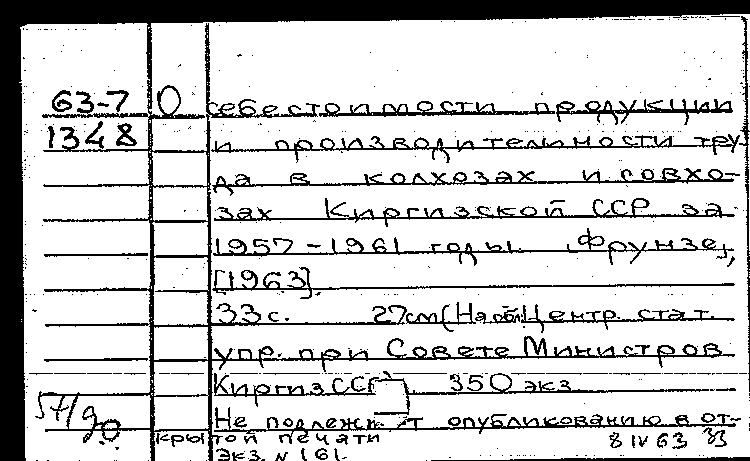 63-7 О себестоимости продукции
1348 и производительности тру
да в колхозах и совхо-
зах Киргизской ССР за
1957-1961 годы. [Фрунзе],
[1963].
33 с. 27 см (На обл. Центр. стат.
упр. при Совете Министров
КиргизССР) 350 экз.
Не подлежит опубликованию в от-
крытой печати 8 IV 63
Экз. N 161.